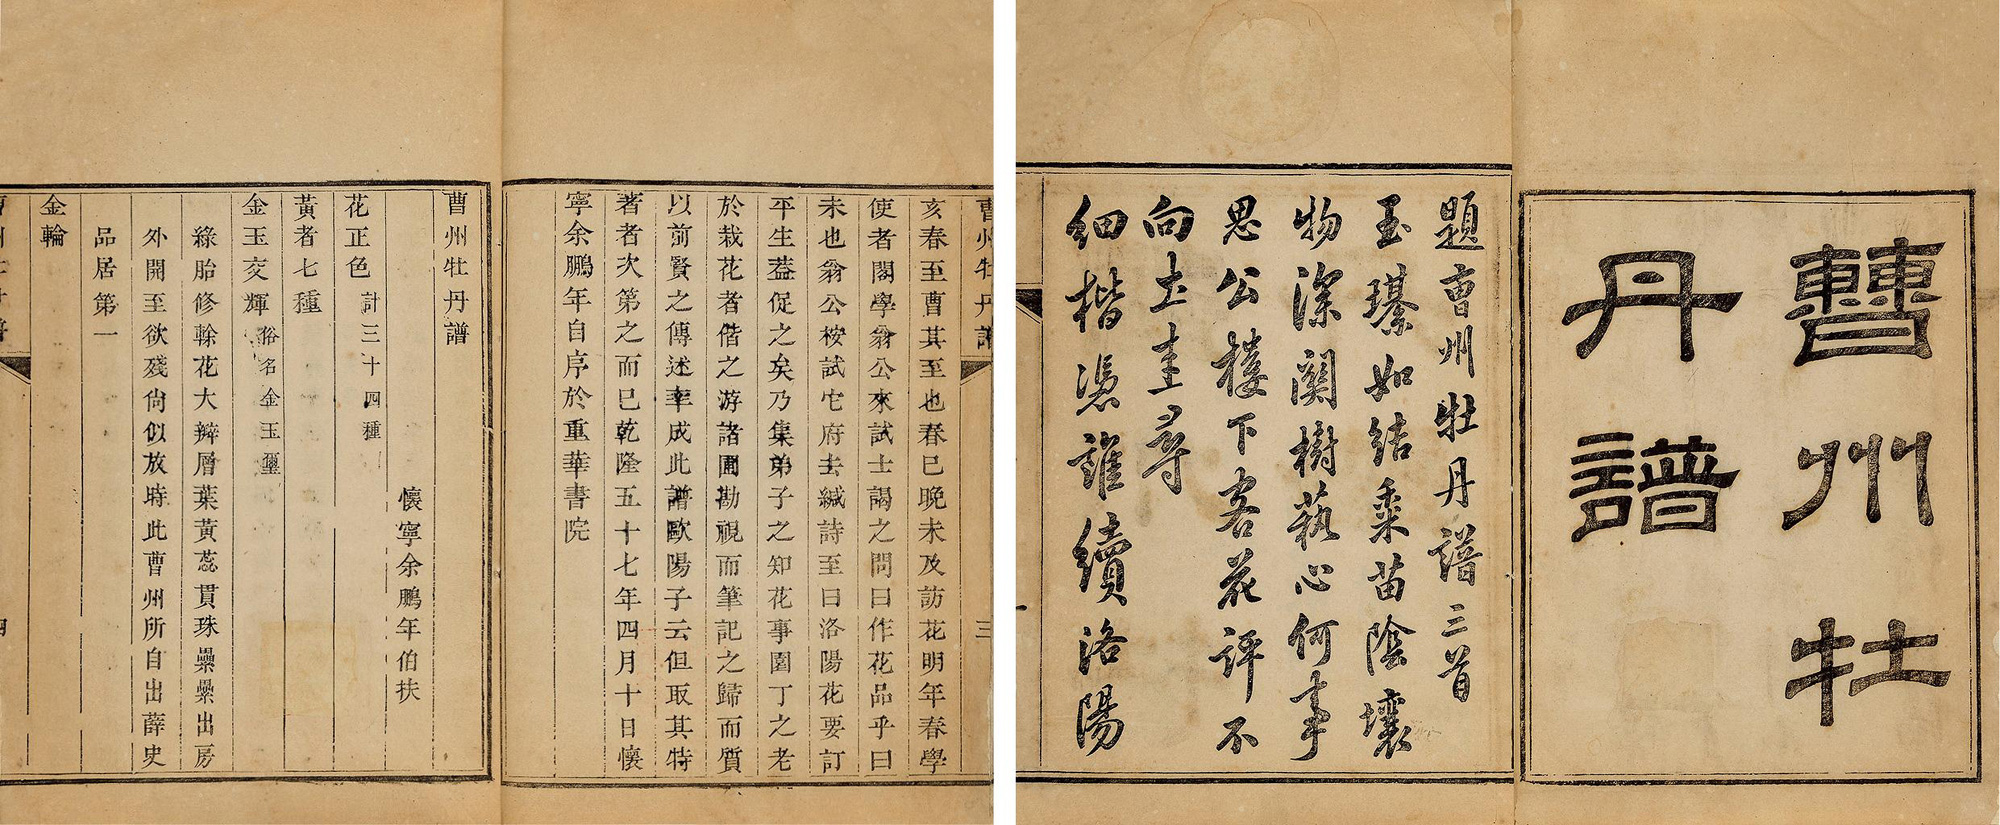 曹州牡
丹譜
題曹州牡丹譜三首
玉璞如結乘苗陰壤
物深闗樹藝心何事
思公樓下客花評不
向土圭尋
細楷憑誰續洛陽
曹州牡丹譜
三
亥春至曹其至也春已晚未及訪花明年春學
使者閣學翁公來試士謁之問曰作花品乎曰
未也翁公按試它府去緘詩至曰洛陽花要訂
平生葢促之矣乃集弟子之知花事園丁之老
於栽花者偕之游諸圃勘視而筆記之歸而質
以前賢之傳述率成此譜歐陽子云但取其特
著者次第之而已乾隆五十七年四月十日懷
寧余鵬年自序於重華書院
曹州牡丹譜
懷寧余鵬年伯扶
花正色 計三十四種
黃者七種
金玉交輝 俗名金玉璽
綠胎修榦花大瓣層葉黃蕊貫珠纍纍出房
外開至欲殘尙似放時此曹州所自出薛史
品居第一
金輪
曹州牡丹譜
四